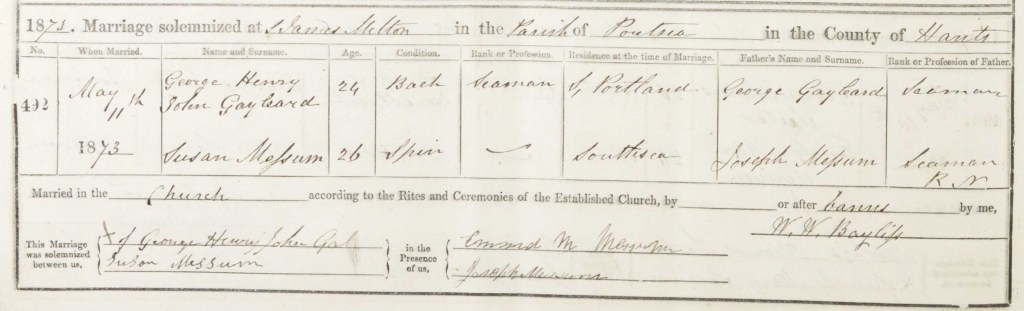 1873. Marriage solemnized at St James Milton in the Parish of Portsea in the County of Hants
No. When Married. Name and Surname. Age. Condition. Rank or Profession. Residence at the time of Marriage. Father's Name and Surname. Rank or Profession of Father.
492 May 11th 1873 George Henry John Gayleard 24 Bach Seaman Portland George Gayleard Seaman
Susan Messum 26 Spin — Southsea Joseph Messum Seaman R N
Married in the Church according to the Rites and Ceremonies of the Established Church, by or after banns by me,
W. W. Bayliss
This Marriage was solemnized between us, X of George Henry John Gal
Susan Messum
in the Presence of us, M Messum
Joseph Messum